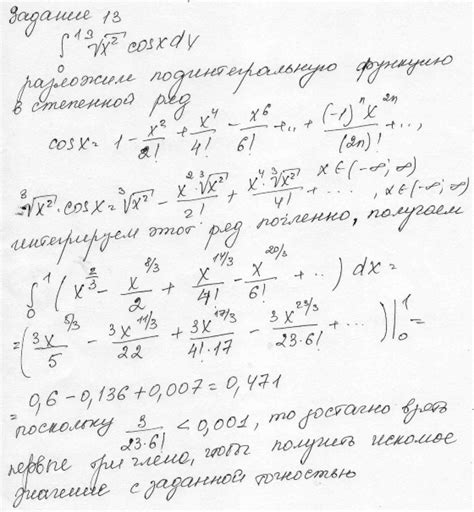 Задание 13
∫₀¹ ∛x² cosx dx
разложим подинтегральную функцию
в степенной ряд
cosx = 1 - x²/2! + x⁴/4! - x⁶/6! + .. + (-1)ⁿ x²ⁿ/(2n)! + ..,
x ∈ (-∞; ∞)
∛x² · cosx = ∛x² - x²·∛x²/2! + x⁴·∛x²/4! + ... , x ∈ (-∞; ∞)
интегрируем этот ряд почленно, получаем
∫₀¹ (x^(2/3) - x^(8/3)/2 + x^(14/3)/4! - x^(20/3)/6! + ..) dx =
= (3x^(5/3)/5 - 3x^(11/3)/22 + 3x^(17/3)/4!·17 - 3x^(23/3)/23·6! + ...)|₀¹ =
= 0,6 - 0,136 + 0,007 = 0,471
поскольку 3/23·6! < 0,001, то достачно взять
первые три члено, чтобы получить искомое
значение с заданной точностью